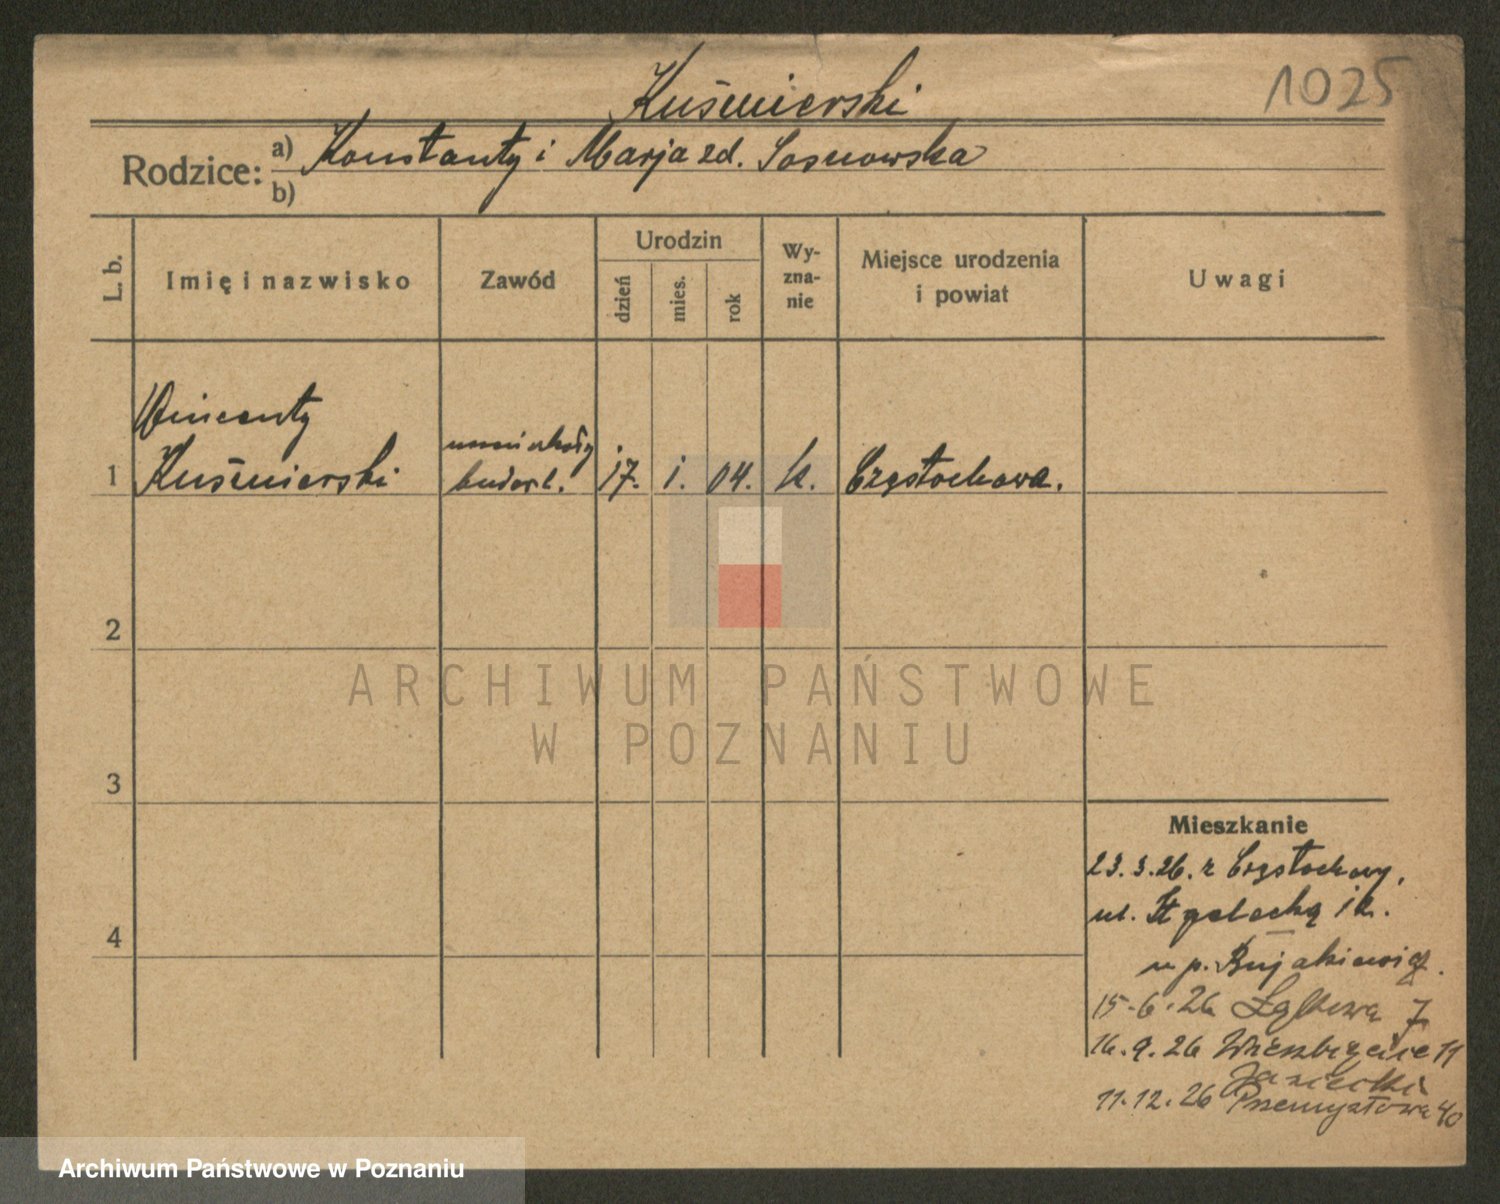 Kuśmierski
1025
Rodzice: a) Konstanty i Marja zd. Sosnowska
b)
L. b.
Imię i nazwisko
Zawód
Urodzin
dzień
mies.
rok
Wy-
zna-
nie
Miejsce urodzenia
i powiat
Uwagi
Wincenty
1 Kuśmierski budowl. 17. i. 04. k. Częstochowa.
2
3
4
ARCHIWUM PAŃSTWOWE
W POZNANIU
Mieszkanie
23.3.26. z Częstochowy,
ul. 12.
u p.
15-6.26 7
16.9.26 Wierzbięcice 11
11.12.26 Przemysłowa 40
Archiwum Państwowe w Poznaniu